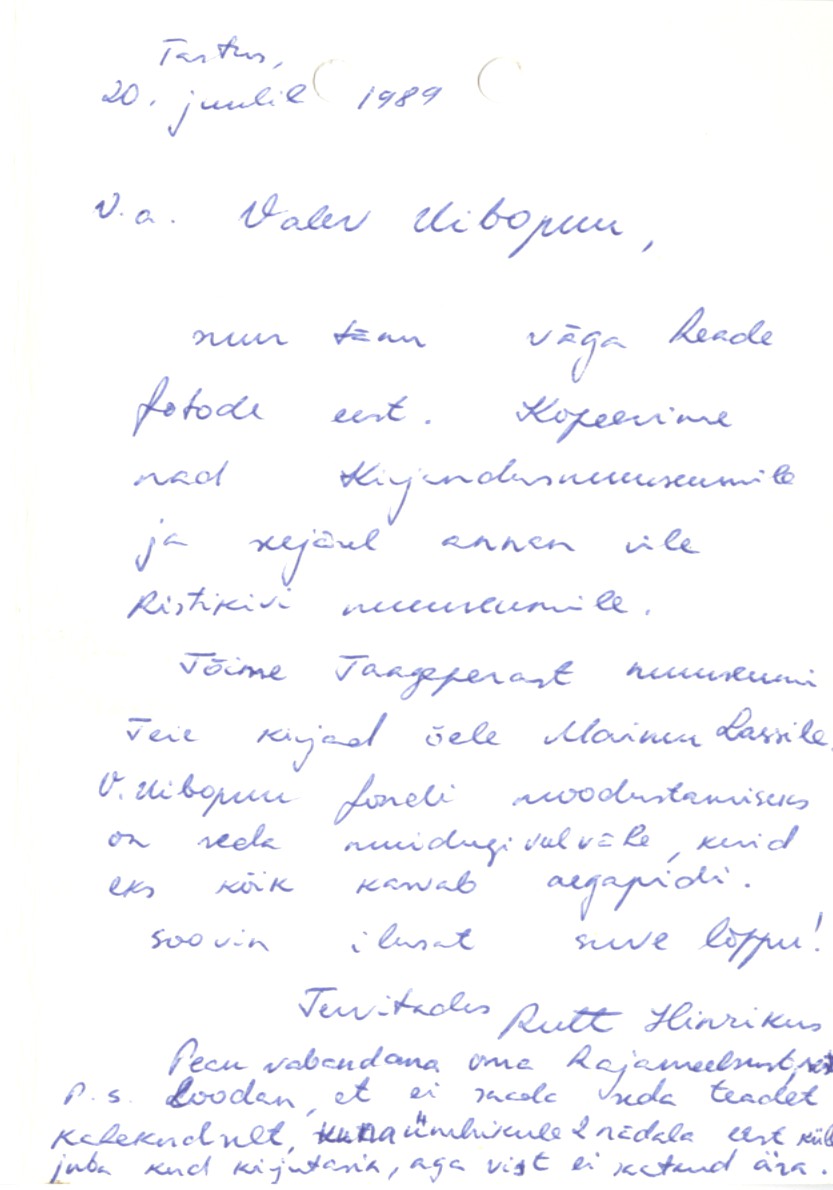 Tartus,
20. juulil 1989
V. a. Valev Uibopuu,
suur tänu väga heade
fotode eest. Kopeerime
nad Kirjandusmuuseumile
ja seejärel annan üle
Ristikivi muuseumile.
Tõime Taageperast muuseumi
Teie kirjad õele Maimu Lassile.
V. Uibopuu fondi moodustamiseks
on seda muidugi vähe, kuid
eks kõik kasvab aegapidi.
Soovin ilusat suve lõppu!
Tervitades Rutt Hinrikus
Pean vabandama oma hajameelsust,
P.S. Loodan, et ei saada seda teadet
kahekordselt, kuna ümbrikule 2 nädala eest küll
juba kord kirjutasin, aga vist ei saatnud ära.